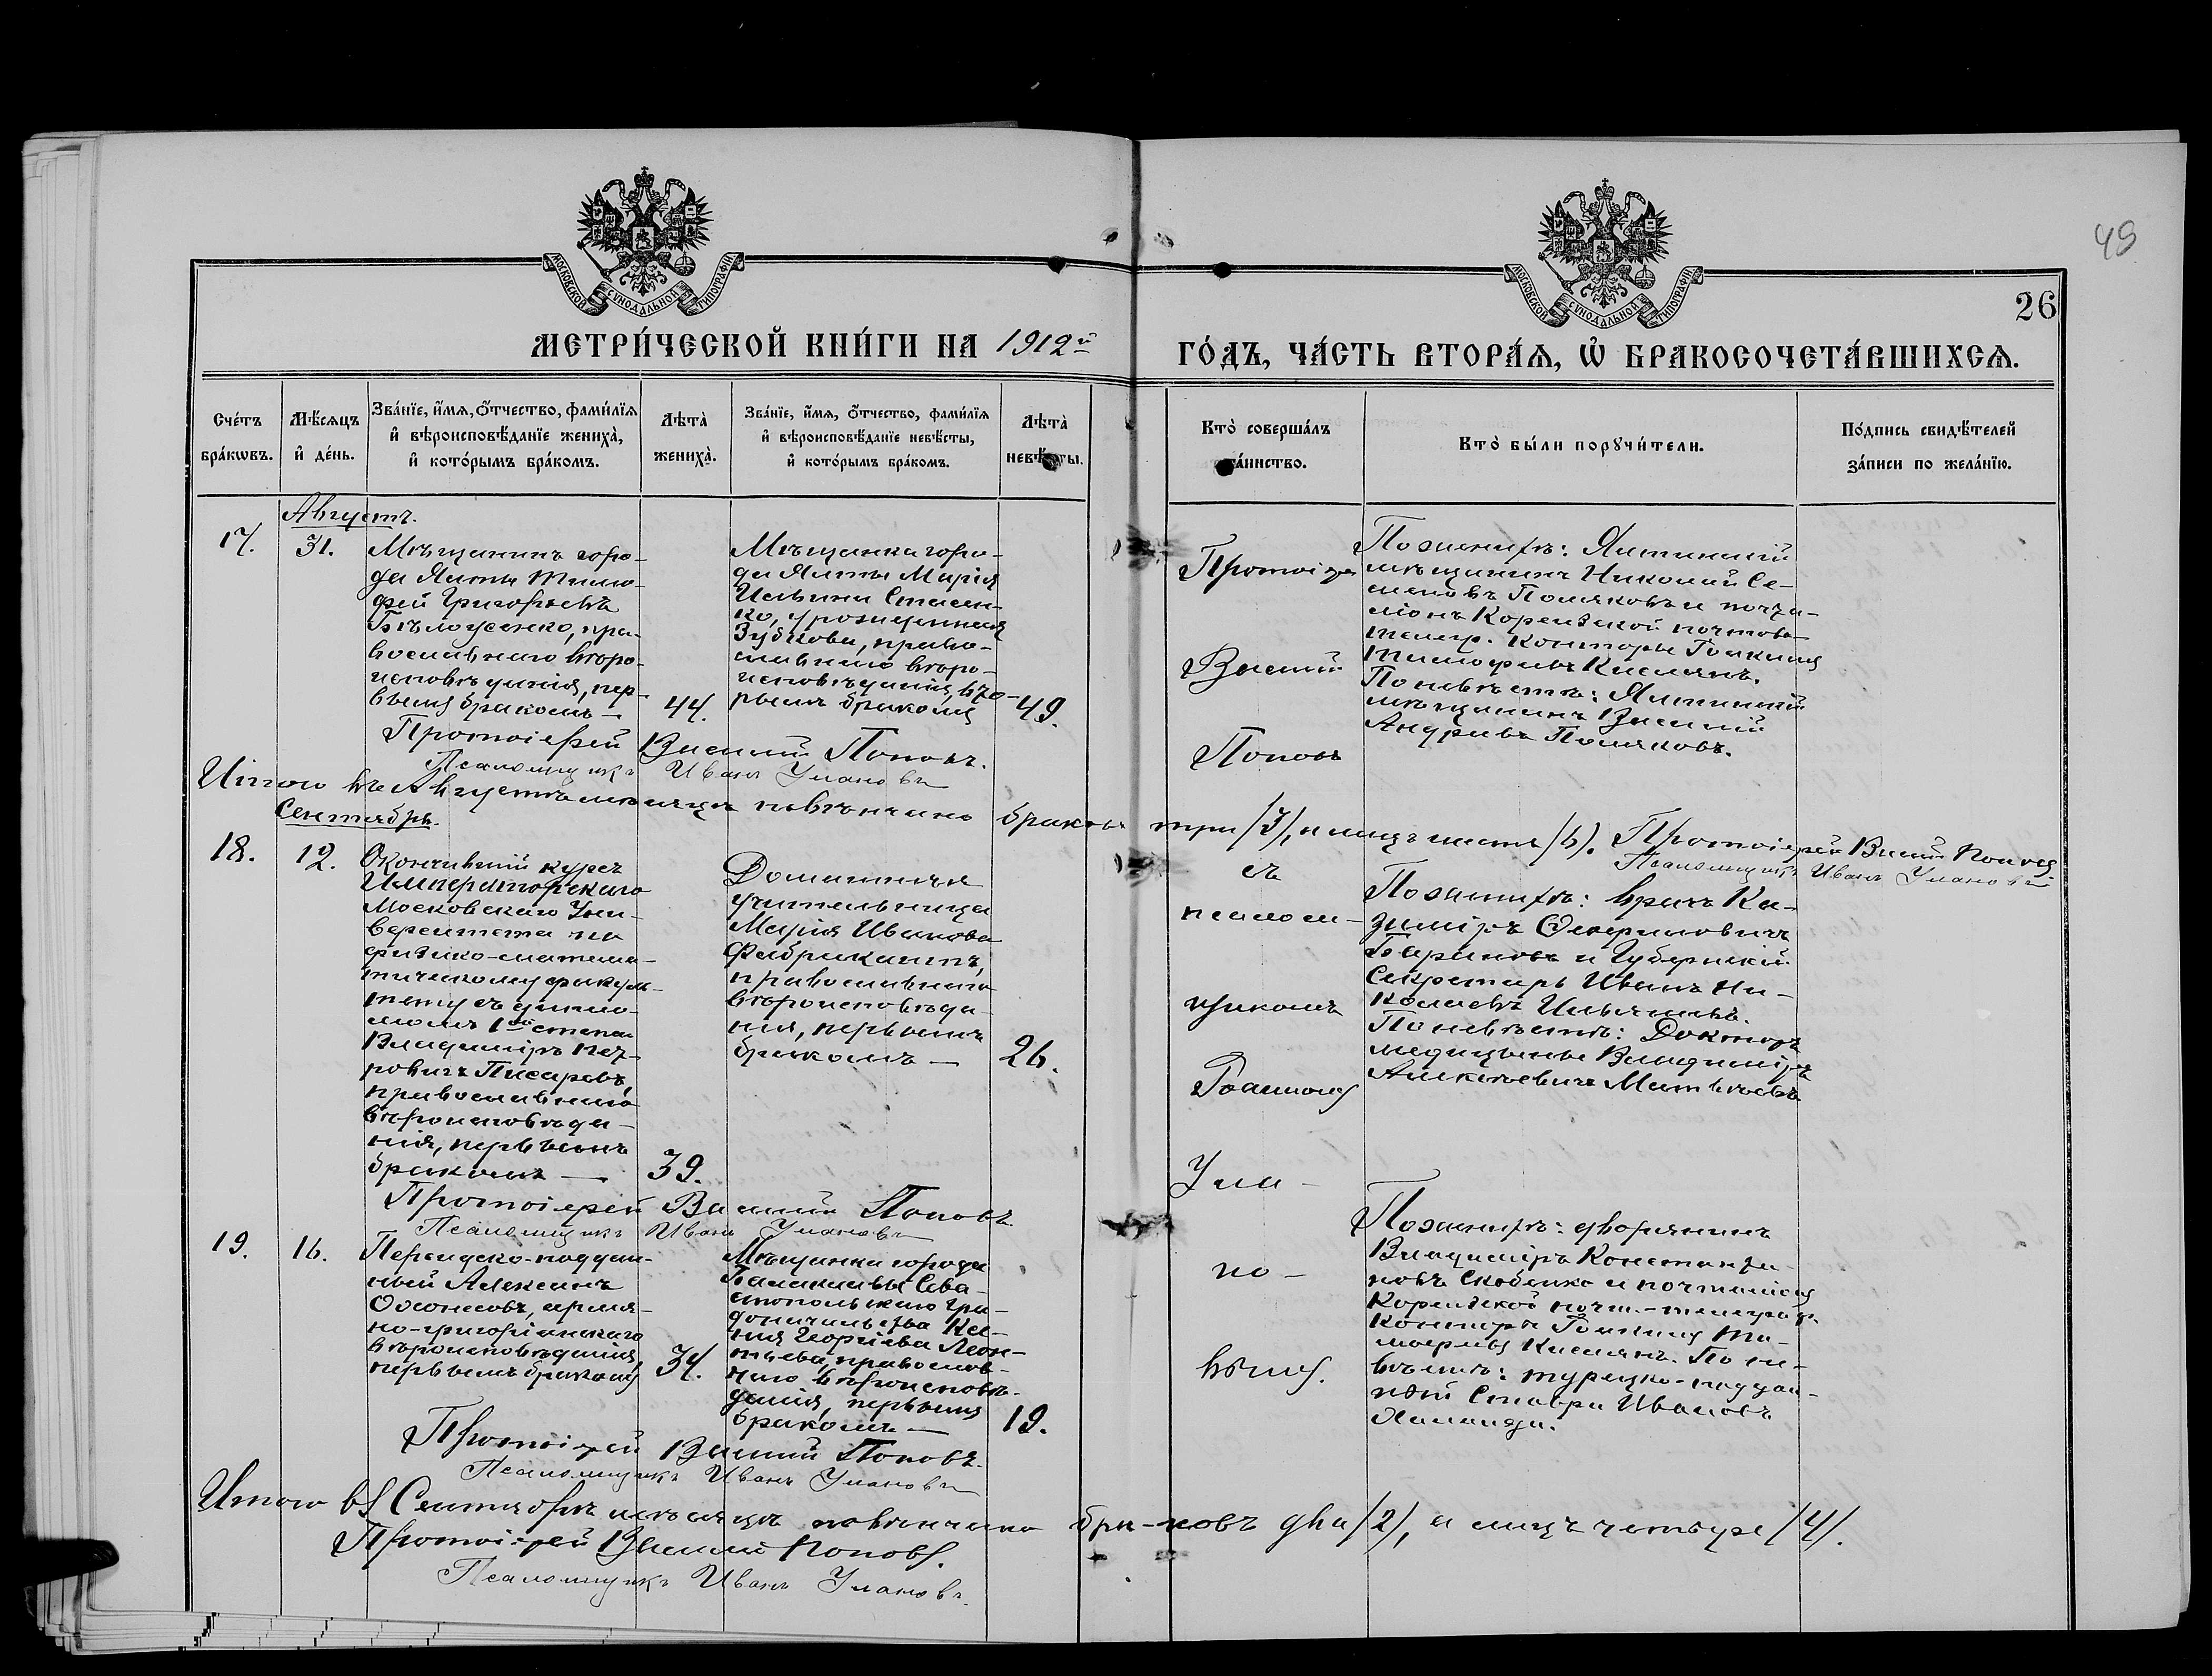 49
МОСКОВСКОЙ СѴНОДАЛЬНОЙ ТИПОГРАФІИ
МОСКОВСКОЙ СѴНОДАЛЬНОЙ ТИПОГРАФІИ
26
МЕТРИ́ЧЕСКОЙ КНИ́ГИ НА 1912й
ГО́ДЪ, ЧА́СТЬ ВТОРА́Ѧ, Ѡ҆ БРАКОСОЧЕТА́ВШИХСѦ.
Сче́тъ
бра́кѡвъ.
Мѣ́сѧцъ
и҆ де́нь.
Зва́нїе, и҆́мѧ, ѻ҆́тчество, фами́лїѧ
и҆ вѣроисповѣ́данїе жениха̀,
и҆ кото́рымъ бра́комъ.
Лѣ́та
жениха̀.
Зва́нїе, и҆́мѧ, ѻ҆́тчество, фами́лїѧ
и҆ вѣроисповѣ́данїе невѣ́сты,
и҆ кото́рымъ бра́комъ.
Лѣ́та
невѣ́сты.
Кто̀ соверша́лъ
та́инство.
Кто̀ бы́ли порꙋчи́тели.
По́дпись свидѣ́телей
за́писи по жела́нїю.
Августъ.
17.
31.
Мѣщанинъ горо-
да Ялты Тимо-
фей Григорьевъ
Бѣлоусенко, пра-
вославнаго вѣро-
исповѣданія, пер-
вымъ бракомъ —
44.
Мѣщанка горо-
да Ялты Марія
Ильина Стасен-
ко, урожденная
Зубкова, право-
славнаго вѣро-
исповѣданія, вто-
рымъ бракомъ
49.
Протоіерей
Василій
Поповъ
По женихѣ: Ялтинскій
мѣщанинъ Николай Се-
меновъ Поляковъ и почта-
ліонъ Кореизской почтово-
телегр. конторы Іоакимъ
Тимофеевъ Кислякъ.
По невѣстѣ: Ялтинскій
мѣщанинъ Василій
Андреевъ Поляковъ.
Протоіерей Василій Поповъ.
Псаломщикъ Иванъ Улановъ
Итого въ Августѣ мѣсяцѣ повѣнчано браковъ три /3/, а лицъ шесть /6/. Протоіерей Василій Поповъ
Псаломщикъ Иванъ Улановъ
Сентябрь.
18.
12.
Окончившій курсъ
Императорскаго
Московскаго Уни-
верситета по
физико-матема-
тическому факуль-
тету съ дипло-
момъ 1ой степени
Владиміръ Пет-
ровичъ Писаревъ,
православнаго
вѣроисповѣда-
нія, первымъ
бракомъ —
39.
Домашняя
учительница
Марія Иванова
Фабрикантъ,
православнаго
вѣроисповѣда-
нія, первымъ
бракомъ —
26.
съ
псалом-
щикомъ
Іоанномъ
Ула-
но-
вымъ.
По женихѣ: врачъ Ка-
зиміръ
и Губернскій
Секретарь Иванъ Ни-
колаевъ
По невѣстѣ: Докторъ
медицины Владиміръ
Алексѣевичъ Матвѣевъ
Протоіерей Василій Поповъ
Псаломщикъ Иванъ Улановъ
19.
16.
Персидско-поддан-
ный Алексанъ
Оганесовъ, армя-
но-григоріанскаго
вѣроисповѣданія,
первымъ бракомъ
34.
Мѣщанка города
Балаклавы Сева-
стопольскаго Гра-
доначальства Ксе-
нія Георгіева Леон-
тьева, православ-
наго вѣроисповѣ-
данія, первымъ
бракомъ —
19.
По женихѣ: дворянинъ
Владиміръ Константи-
новъ и почталіонъ
Кореизской почт.-телеграф.
конторы Іоакимъ Ти-
мофеевъ Кислякъ. По не-
вѣстѣ: турецко-поддан-
ный Ставри Ивановъ
Протоіерей Василій Поповъ.
Псаломщикъ Иванъ Улановъ
Итого въ Сентябрѣ мѣсяцѣ повѣнчано бра-ковъ два /2/, а лицъ четыре /4/.
Протоіерей Василій Поповъ.
Псаломщикъ Иванъ Улановъ.